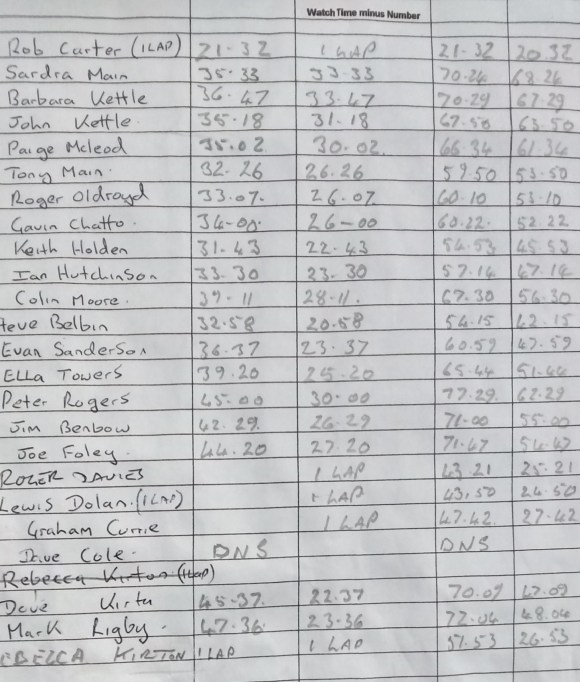 Watch Time minus Number
Rob Carter (1LAP) 21.32 1 LAP 21.32 20.32
Sardra Main 35.33 33.33 70.26 68.26
Barbara Kettle 36.47 33.47 70.29 67.29
John Kettle. 35.18 31.18 67.50 63.50
Paige Mcleod 35.02 30.02. 66.34 61.34
Tony Main. 32.26 26.26 59.50 53.50
Roger Oldroyd 33.07. 26.07 60.10 53.10
Gavin Chatto. 34-00. 26-00 60.22. 52.22
Keith Holden 31.43 22.43 54.53 45.53
Ian Hutchinson 33.30 23.30 57.14 47.14
Colin Moore. 39.11 28.11. 67.30 56.30
teve Belbin 32.58 20.58 54.15 42.15
Evan Sanderson 36.37 23.37 60.59 47.59
ELLA TOWERS 39.20 25.20 65.44 51.44
Peter Rogers 45.00 30.00 77.29. 62.29
Jim Benbow 42.29. 26.29 71.00 55.00
Joe Foley. 44.20 27.20 71.47 54.47
ROGER DAVIES 1 LAP 43.21 25.21
Lewis Dolan. (1LAP) 1 LAP 43.50 24.50
Graham Currie 1 LAP 47.42. 27.42
Dave Cole. DNS DNS
Rebecca Kirton (1Lap)
Dave Kirtn 45.37. 22.37 70.09 47.09
Mark Rigby. 47.36. 23.36 72.04 48.04
EBECCA KIRTON 1 LAP 1 LAP 51.53 26.53